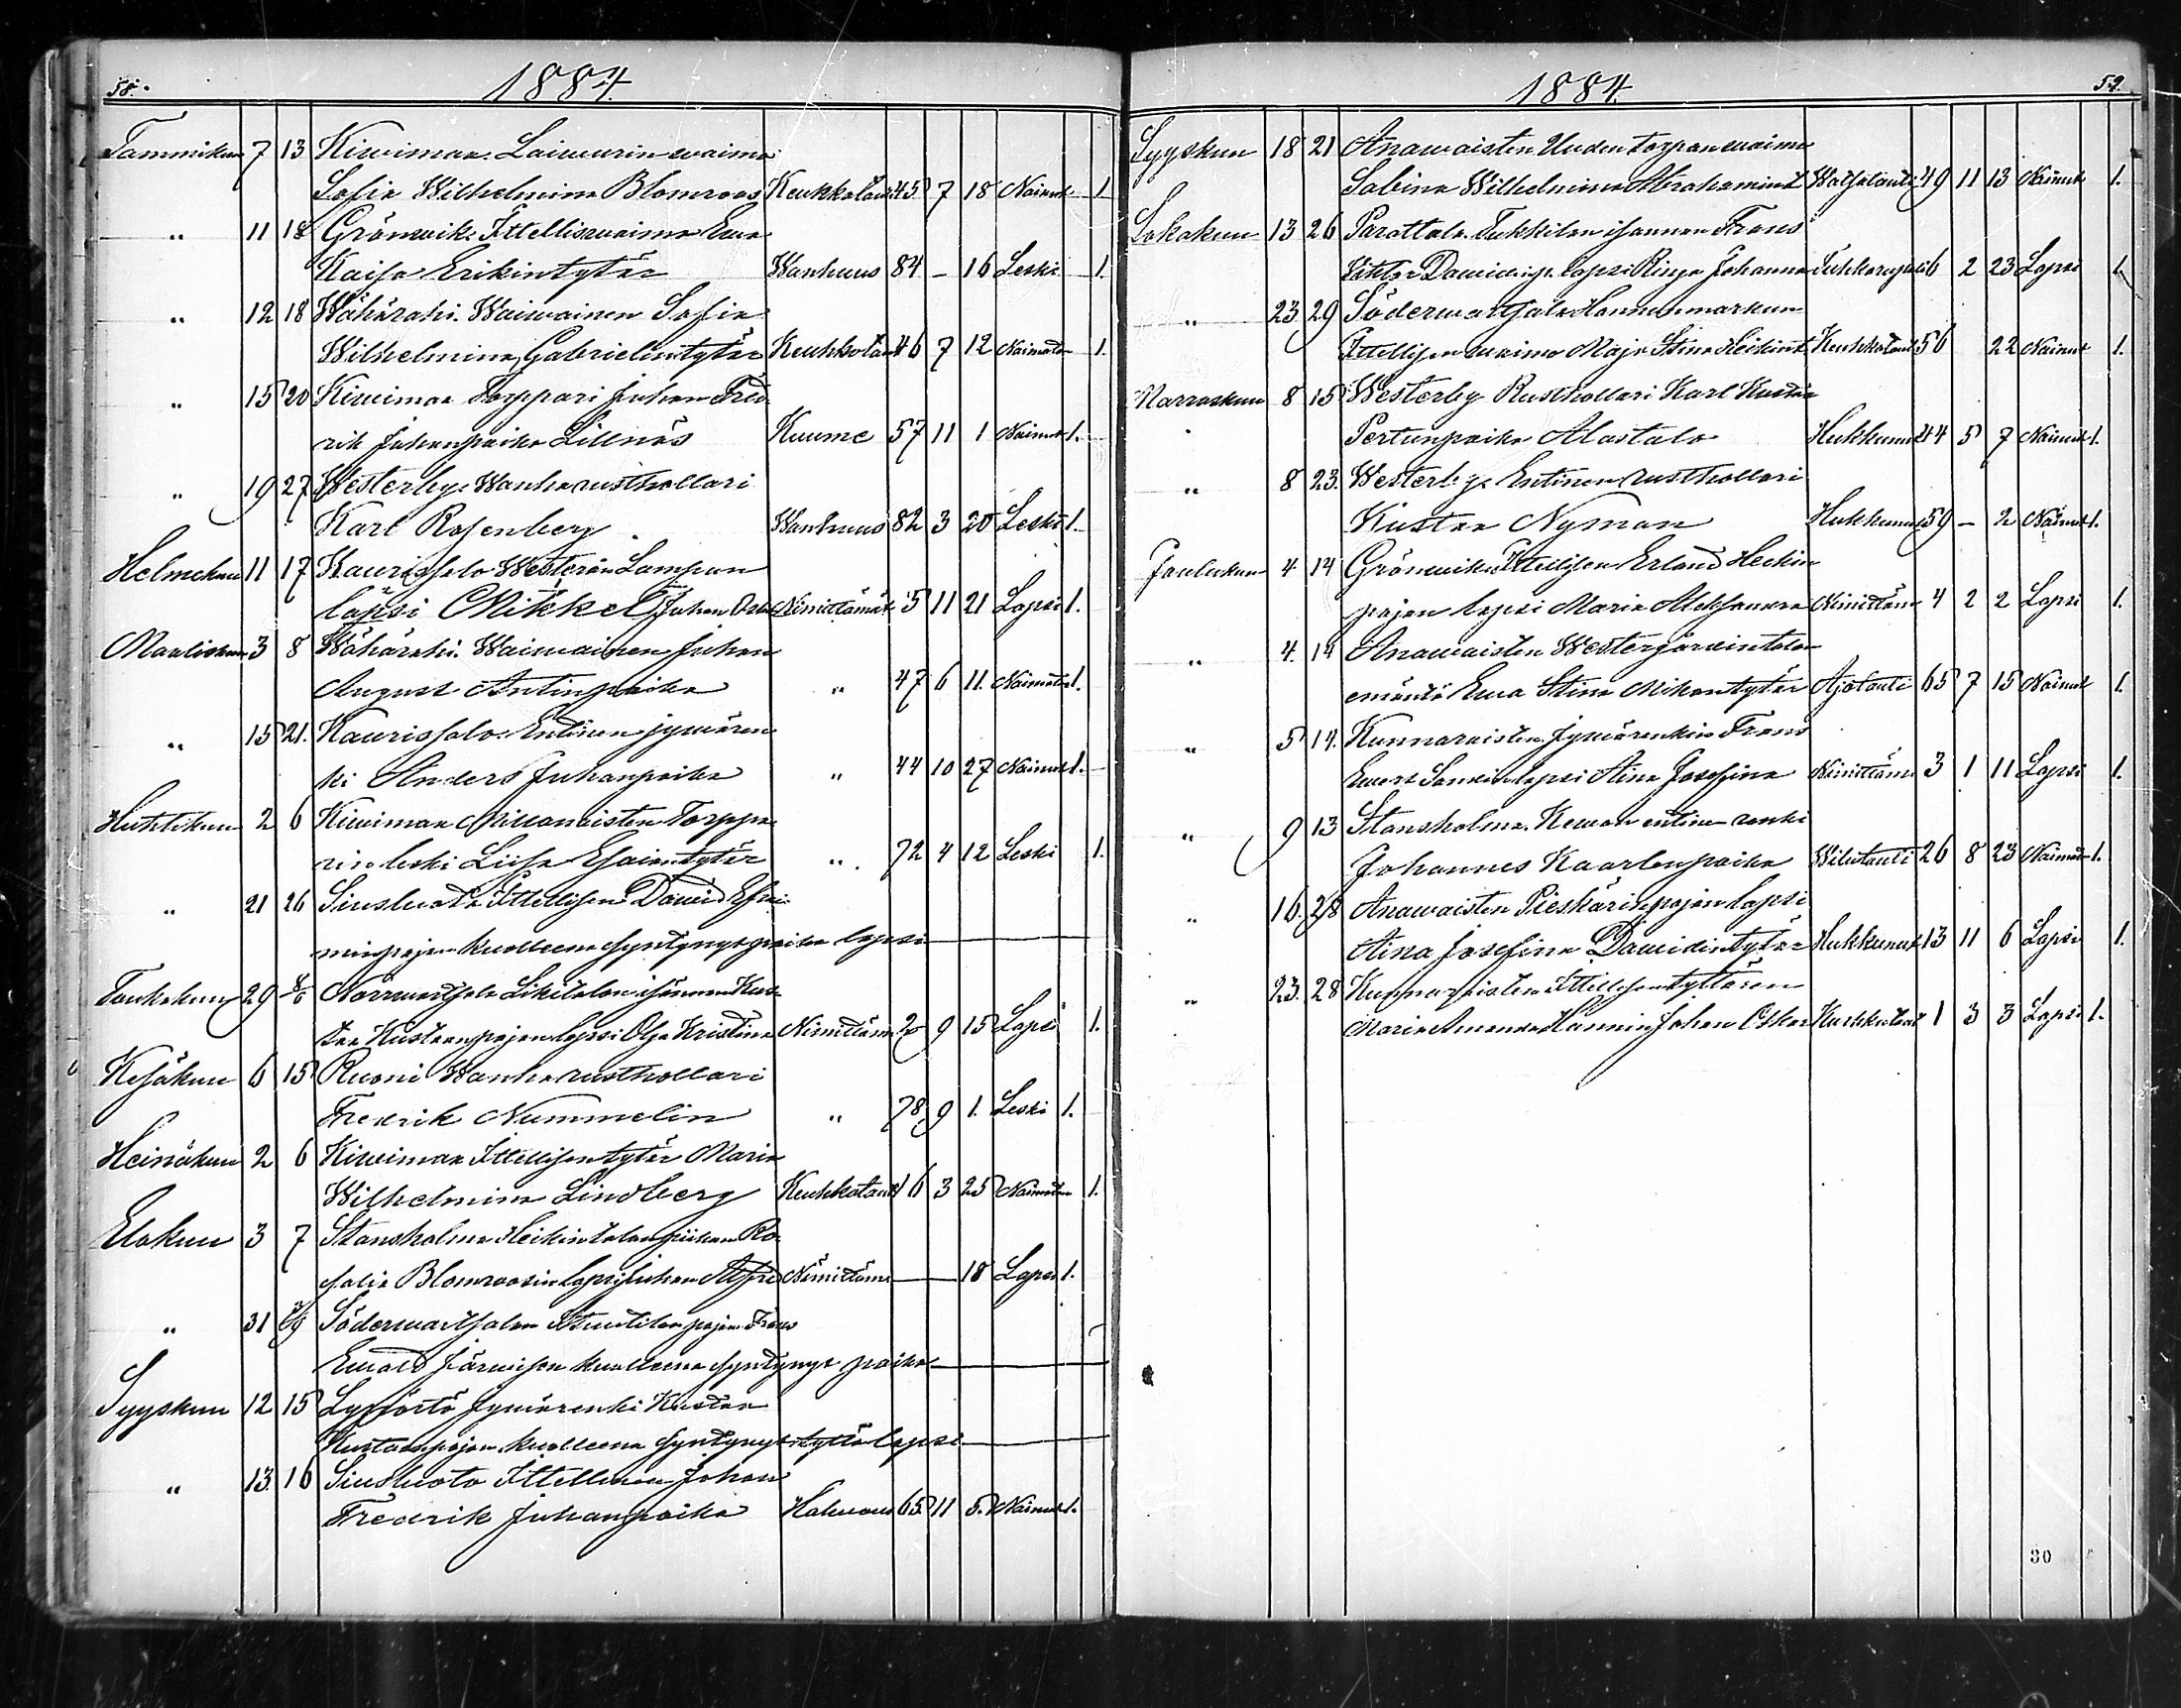 58.
1884.
Tammikuu 7 13 Kiwimaa. Laiwurin waimo
Sofia Wilhelmina Blomroos Keuhkotau 45 7 18 Nainut 1
" 11 18 Grönwik. Ittellisswaimo Ewa
Kaisa Erikintytär Wanhuus 84 - 16 Leski 1.
" 12 18 Wähärahi. Waiwainen Sofia
Wilhelmina Gabrielintytär Keuhkotau 46 7 12 Naimatoin 1.
" 15 20 Kiwimaa Torppari Juhan Fred
rik Juhanpoika Lillnäs Kuume 57 11 1 Nainut 1.
" 19 27 Westerby. Wanha rusthollari
Karl Rosenberg Wanhuus 82 3 20 Leski 1.
Helmekuu 11 17 Kaurissalo Westerin Lampun
lapsi Mikkel Juhan Nimittämät. 5 11 21 Lapsi 1.
Maaliskuu 3 8 Wähärahi. Waiwainen Juhan
August Antinpoika " 47 6 11. Naimatoin 1.
" 15 21. Kaurissalo. Entinen jywären
ki Anders Juhanpoika " 44 10 27 Nainut 1.
Huhtikuu 2 6 Kiwimaa Torppa
rin leski Liisa Esaiantytär " 72 4 12 Leski 1.
" 21 26 Siusluoto Ittellisen David Efrai
minpojan kuolleena syntynyt poika lapsi
Toukokuu 29 8/6 Norrwartsala Likitalon isännän Kus
taa Kustaanpojan lapsi Olga Kristina Nimittäm 2 9 15 Lapsi 1.
Kesäkuu 6 15 Ruoni Wanha rusthollari
Fredrik Nummelin " 78 9 1. Leski 1.
Heinäkuu 2 6 Kiwimaa Ittellisen tytär Maria
Wilhelmina Lindberg Keuhkotaut 16 3 25 Naimatoin 1.
Elokuu 3 7 Stansholma Heikintalon piikan Ro
salia Blomroosin lapsi Juhan Alfred Nimittäm - - 18 Lapsi 1.
" 31 /9 Söderwartsalan pojan Frans
Ewald Järwisen kuolleena syntynyt poika
Syyskuu 12 15 Lypörtö jywärenki Kustaa
Kustaanpojan kuolleena syntynyt tyttö lapsi
" 13. 16 Siusluoto Ittellinen Johan
Fredrik Juhanpoika Halwaus 65 11 5. Nainut 1.
1884.
59.
Syyskuu 18 21 Anawaisten Uuden torpan waimo
Sabina Wilhelmina Abrahamint Watsatauti 49 11 13 Nainut 1.
Lokakuu 13 26 Parattala. Tukkilan isännän Frans
Viktor Dawidinp. lapsi Ringa Johanna Tuhkarupuli 6 2 23 Lapsi 1.
" 23 29 Söderwartsala Hannunmarkun
Ittellisen waimo Maja Stina Heikint Keuhkotaut 56 22 Nainut 1.
Marraskuu 8 15 Westerby Rusthollari Karl Kustaa
Pertunpoika Alastalo Hukkunut 44 5 7 Nainut 1.
" 8 23. Westerby. Entinen rusthollari
Kustaa Nyman Hukkunut 59 - 2 Nainut 1.
Joulukuu 4 14 Grönwikin Ittellisen Erland Heikin
pojan lapsi Maria Aleksandra Nimittäm 4 2 2 Lapsi 1.
" 4. 14 Anawaisten Westerjärwintalon
emäntä Ewa Stina Mikontytär Ajotauti 65 7 15 Nainut 1.
" 5 14. Kunnaraisten. Jywärenkin Frans
Ewert lapsi Aina Josefina Nimittäm 3 1 11 Lapsi 1.
" 9 13 Stansholma. entinen renki
Johannes Kaarlenpoika Wilutauti 26 8 23 Naimatoin 1.
" 16. 28 Anawaisten Pieskärinpojan lapsi
Aina Josefina Dawidintytär Hukkunut 13 11 6 Lapsi 1.
" 23. 28 Kunnaraisten Ittellisen tyttären
Maria Amanda Johan Oskar Kurkkutaut 1 3 3 Lapsi 1.
30